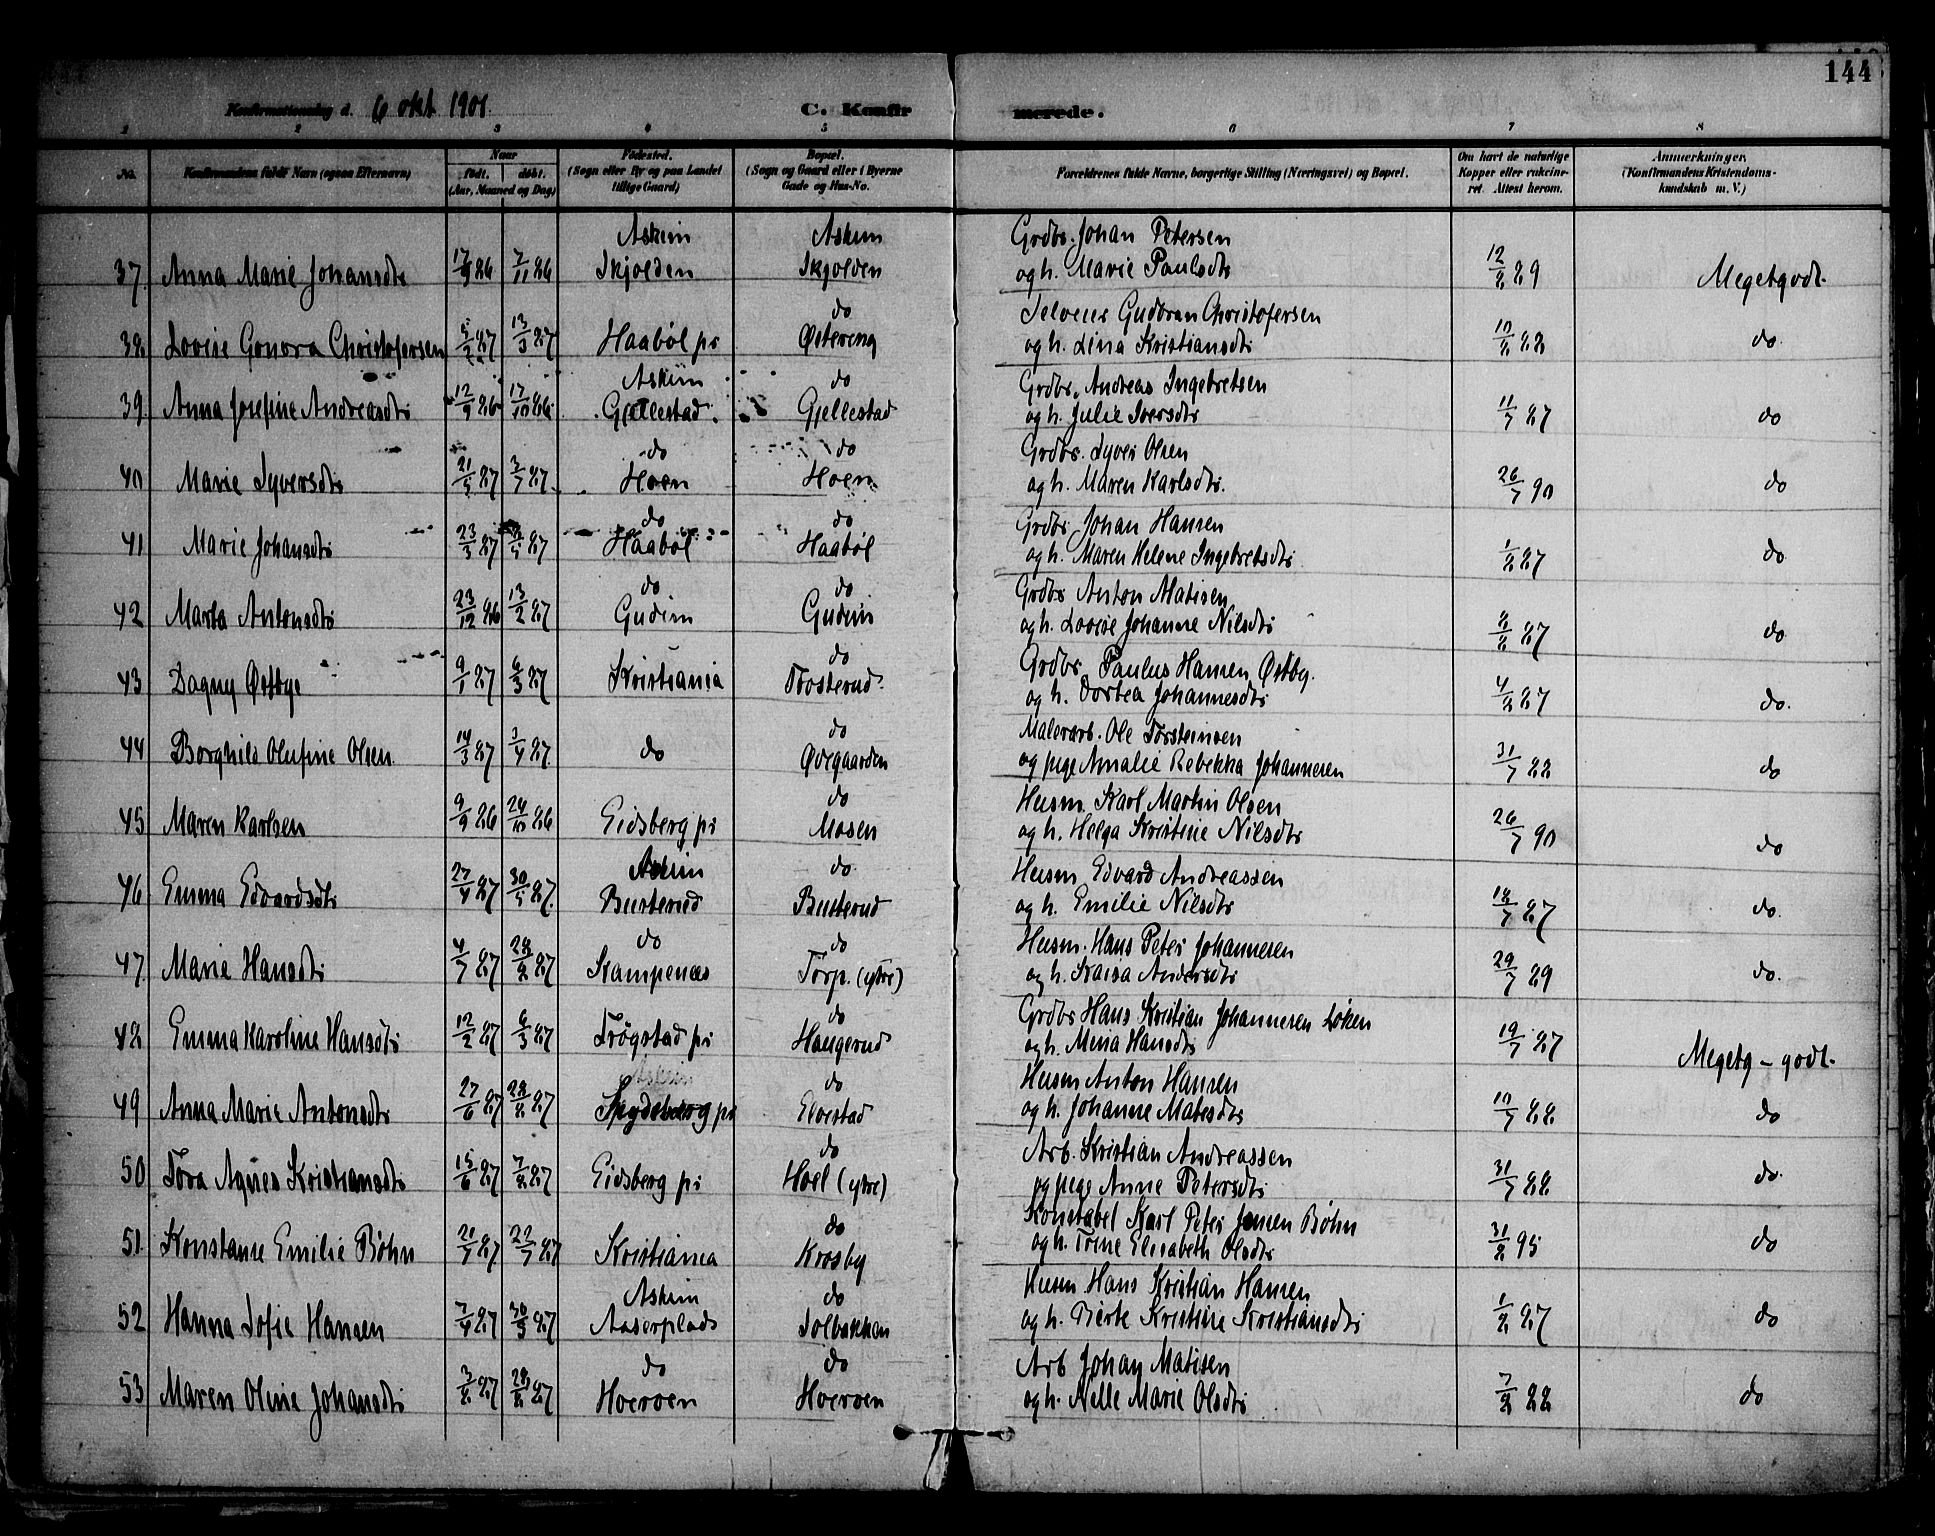 144
Konfirmationsdag d. 6 okt 1901.
C. Konfirmerede.
1 2 3 4 5 6 7 8
No. Konfirmandens fulde Navn (ogsaa Efternavn) Naar født. døbt. (Aar, Maaned og Dag) Fødested. (Sogn eller By og paa Landet tillige Gaard) Bopæl. (Sogn og Gaard eller i Byerne Gade og Hus-No. Forældrenes fulde Navne, borgerlige Stilling (Næringsvei) og Bopæl. Om havt de naturlige Kopper eller vakcineret. Attest herom. Anmerkninger. (Konfirmandens Kristendomskundskab m. V.)
Askim Askim Grdbr. Johan Petersen
37. Anna Marie Johansdtr 17/9 86 7/11 86 Skjolden Skjolden og h. Marie Paulsdtr 12/8 89 Megetgodt.
do Selveier Gudbran Christofersen
38. Lovise Gonora Christofersen 5/2 87 13/3 87 Haabøl pr Østereng og h. Lina Kristiansdtr 10/8 88 do.
Askim do Grdbr. Andreas Ingebretsen
39 Anna Josefine Andreasdtr 12/9 86 17/10 86 Gjellestad Gjellestad og h. Julie Iversdtr 11/7 87 do
do do Grdbr. Syver Olsen
40 Marie Syversdtr 21/5 87 3/7 87. Hoen Hoen og h. Maren Karlsdtr. 26/7 90 do
do do Grdbr Johan Hansen
41 Marie Johansdtr 23/3 87 /5 87 Haabøl Haabøl og h. Maren Helene Ingebretsdtr 1/8 87 do
do do Grdbr Anton Matisen
42 Marta Antonsdtr 23/12 86 13/2 87 Gudim Gudim og h. Lovise Johanne Nilsdtr 8/8 87 do
do Grdbr. Paulus Hansen Østby.
43 Dagny Østbye 9/1 87 6/3 87 Kristiania Trosterud. og h. Dortea Johannesdtr 4/8 87 do.
do Malerarb. Ole Torsteinsen
44 Borghild Olufine Olsen. 14/3 87 3/4 87. do Øvrgaarden og pige Amalie Rebekka Johannesen 31/7 88 do
do Husm. Karl Martin Olsen
45 Maren Karlsen 9/9 86 24/10 86 Eidsberg pr Mosen og h. Helga Kristine Nilsdtr 26/7 90 do
Askim do. Husm Edvard Andreassen
46 Emma Edvardsdtr 27/4 87 30/5 87. Busterud Busterud og h. Emilie Nilsdtr 18/7 87 do.
do do Husm. Hans Peter Johannesen
47. Marie Hansdtr 4/7 87 28/8 87 Kampenæs Torp. (ytre) og h. Kaisa Andersdtr 29/7 89 do.
do Grdbr Hans Kristian Johannesen Løken
48 Emma Karoline Hansdtr 12/2 87 6/3 87 Trøgstad pr Haugerud og h. Mina Hansdtr 19/7 87 Megetg - godt.
Askim do Husm Anton Hansen
49 Anna Marie Antonsdtr 27/6 87 28/8 87 Spydeberg pr Elvestad og h. Johanne Matesdtr 10/7 88 do
do Arb. Kristian Andreassen
50 Tora Agnes Kristiansdtr 15/6 87 7/8 87 Eidsberg pr Hoel (ytre) og pige Anne Petersdtr 31/7 88 do.
do Konstabel Karl Peter Jensen Bøhn
51. Konstanse Emilie Bøhn 21/5 87. 22/7 87 Kristiania Krosby og h. Trine Elisabeth Olsdtr 31/8 95 do
Askim do Husm Hans Kristian Hansen
52 Hanna Sofie Hansen 7/4 87 30/5 87 Aaserplads Solbakken og h. Berte Kristine Kristiansdtr 1/8 87 do
do do Arb Johan Matisen
53 Maren Oline Johansdtr 3/8 87 28/8 87 Hoeroen Hoeroen og h. Nelle Marie Olsdtr 7/8 88 do